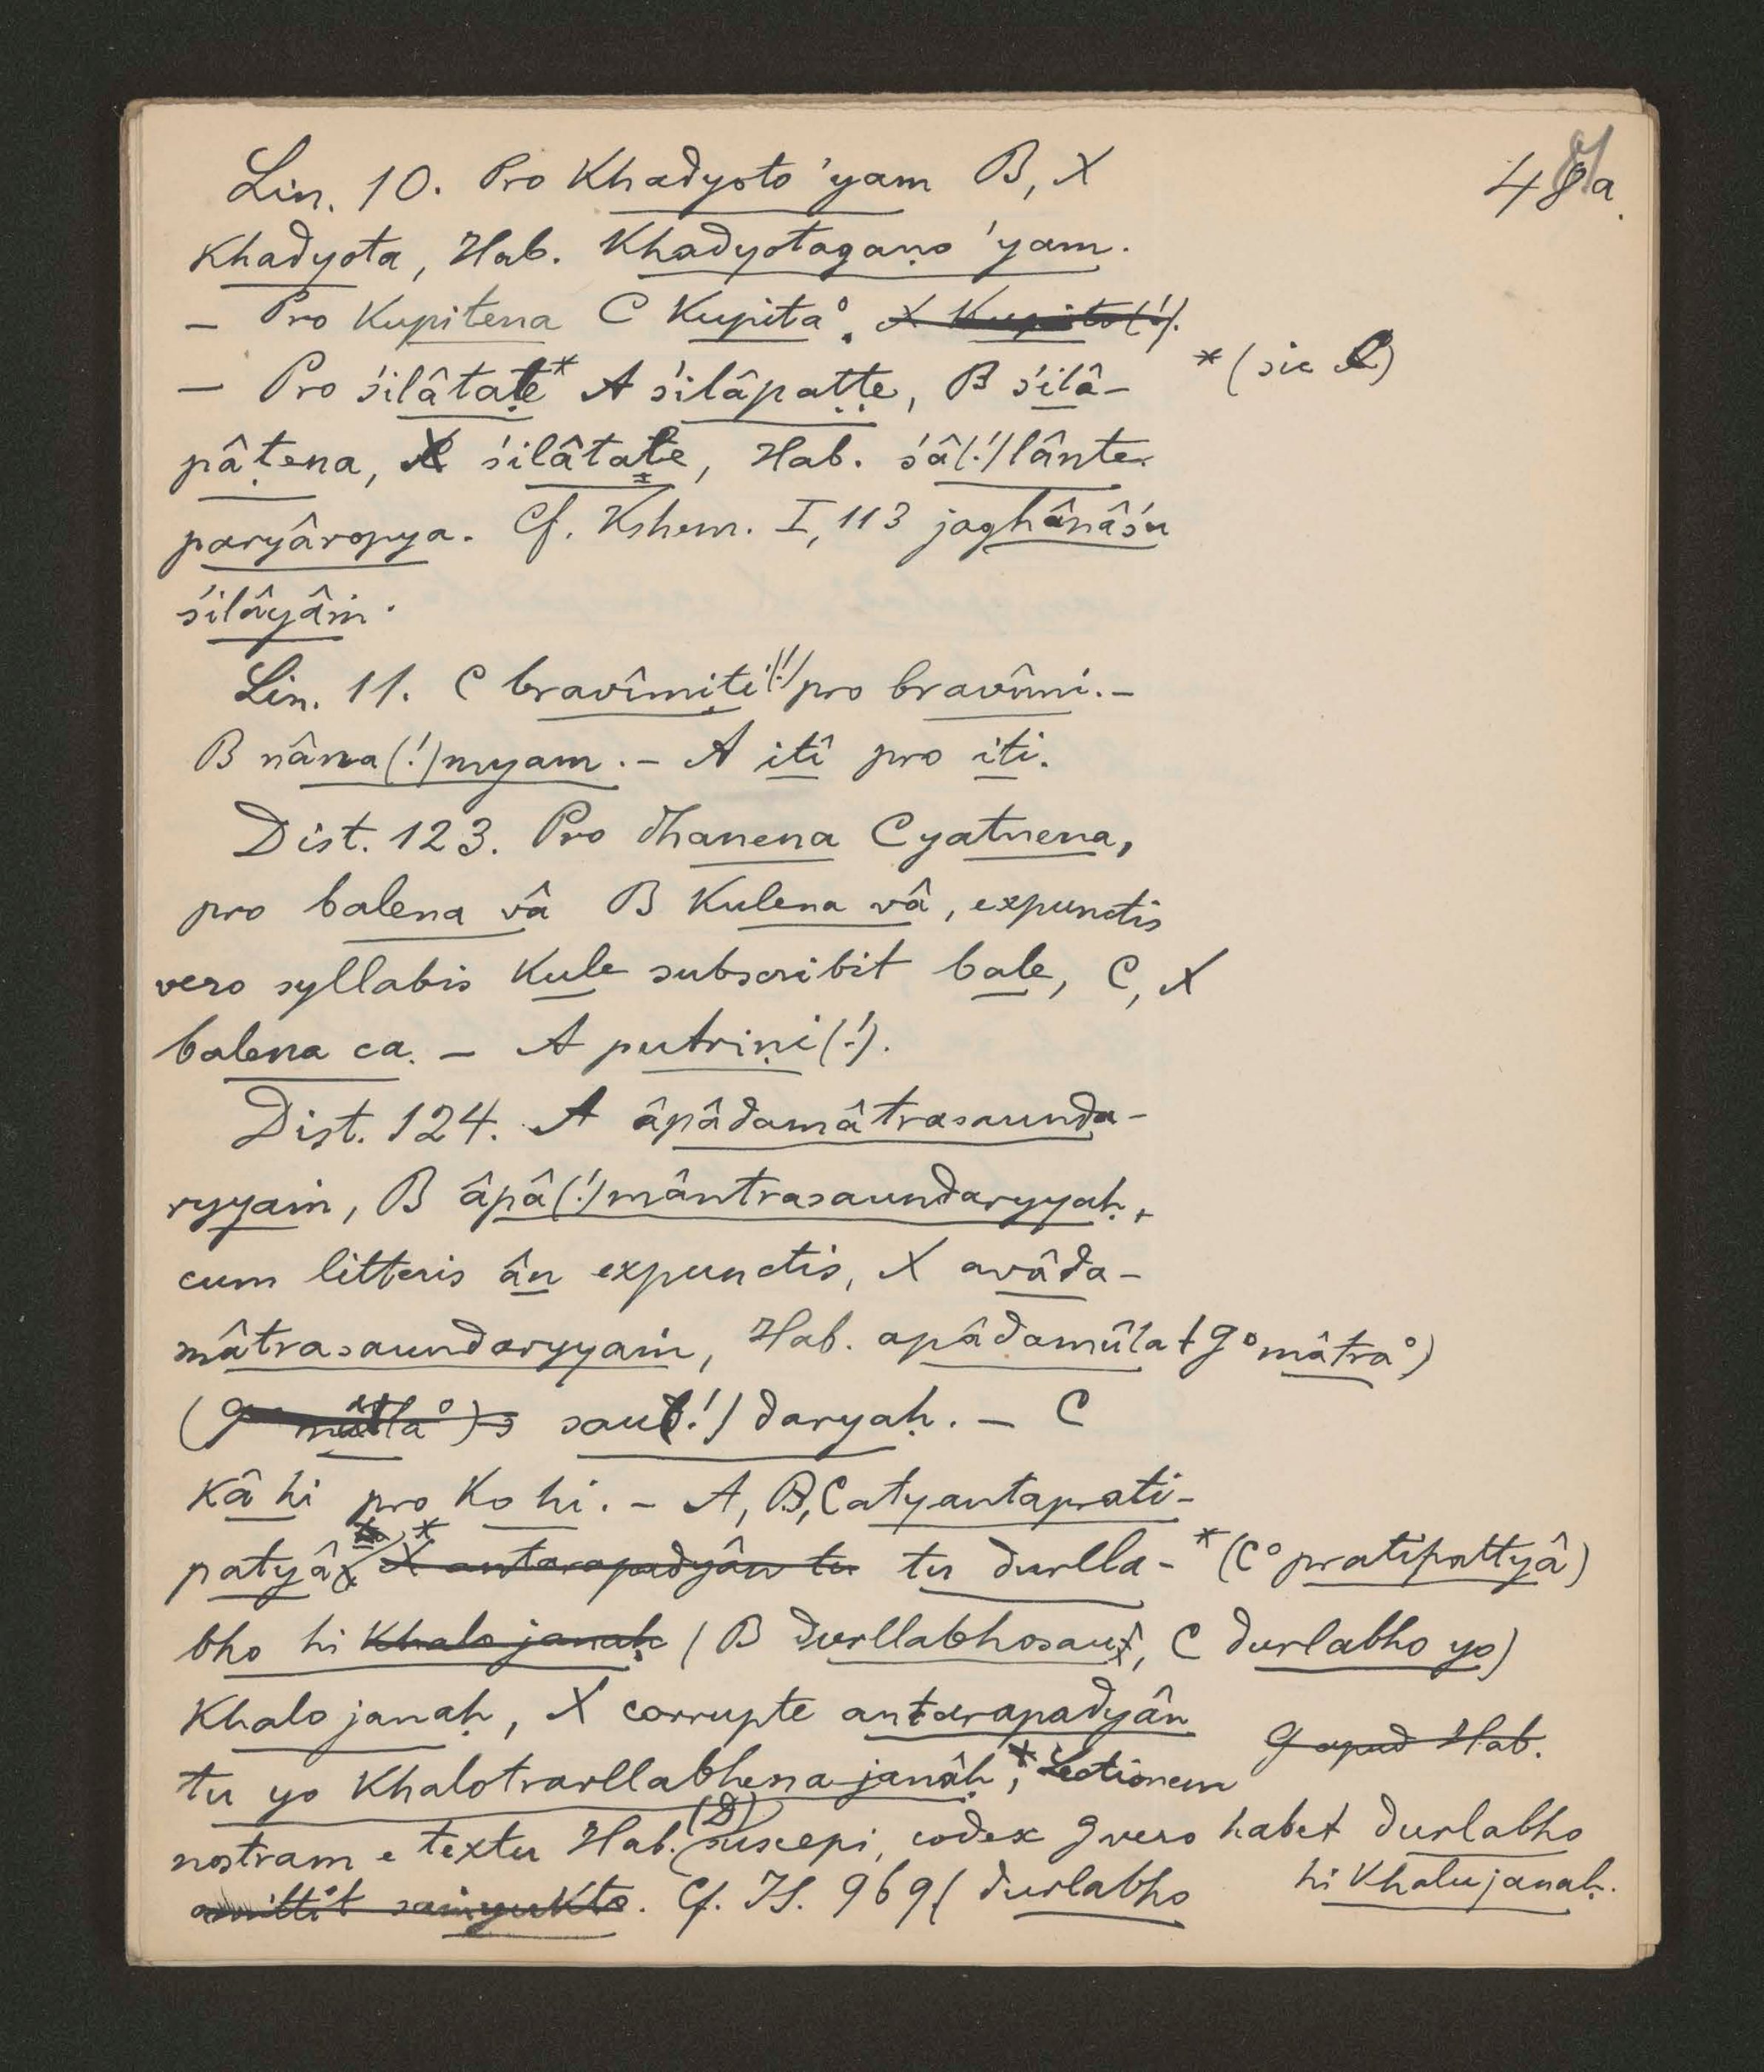 48a.
Lin. 10. Pro Khadyoto 'yam B, X
Khadyota, Hab. Khadyotagaṇo 'yam.
– Pro Kupitena C Kupita°. X Kupito(!).
– Pro śilâtale* A śilâpaṭṭe, B śilâ- *(sic C)
pâṭena, X śilâtale, Hab. śâ(!)lânte
paryâropya. Cf. Kshem. I, 113 jaghânâśu
śilâyâṁ.
Lin. 11. C bravîmiti(!) pro bravîmi. –
B nâma(!)myam. – A itî pro iti.
Dist. 123. Pro dhanena C yatnena,
pro balena vâ B Kulena vâ, expunctis
vero syllabis Kule subscribit bale, C, X
balena ca. – A putriṇi(!).
Dist. 124. A âpâdamâtrasaunda-
ryyaṁ, B âpâ(!)mântrasaundaryyaḥ,
cum litteris ân expunctis, X avâda-
mâtrasaundaryyaṁ, Hab. apâdamûla (G °mâtra°)
sau(!)daryaḥ. – C
Kâ hi pro Ko hi. – A, B, C atyantaprati-
patyâ* X antarapadyân tu tu durlla- *(C °pratipattyâ)
bho hi Khalo janaḥ (B durllabhosau, C durlabho yo)
Khalo janaḥ, X corrupte antarapadyân
tu yo Khalotrarllabhena janâḥ, Lectionem G apud Hab.
nostram e textu Hab. (D) suscepi, codex G vero habet durlabho
hi Khalu janaḥ.
omittit saṁyukto. Cf. IS. 969 (durlabho